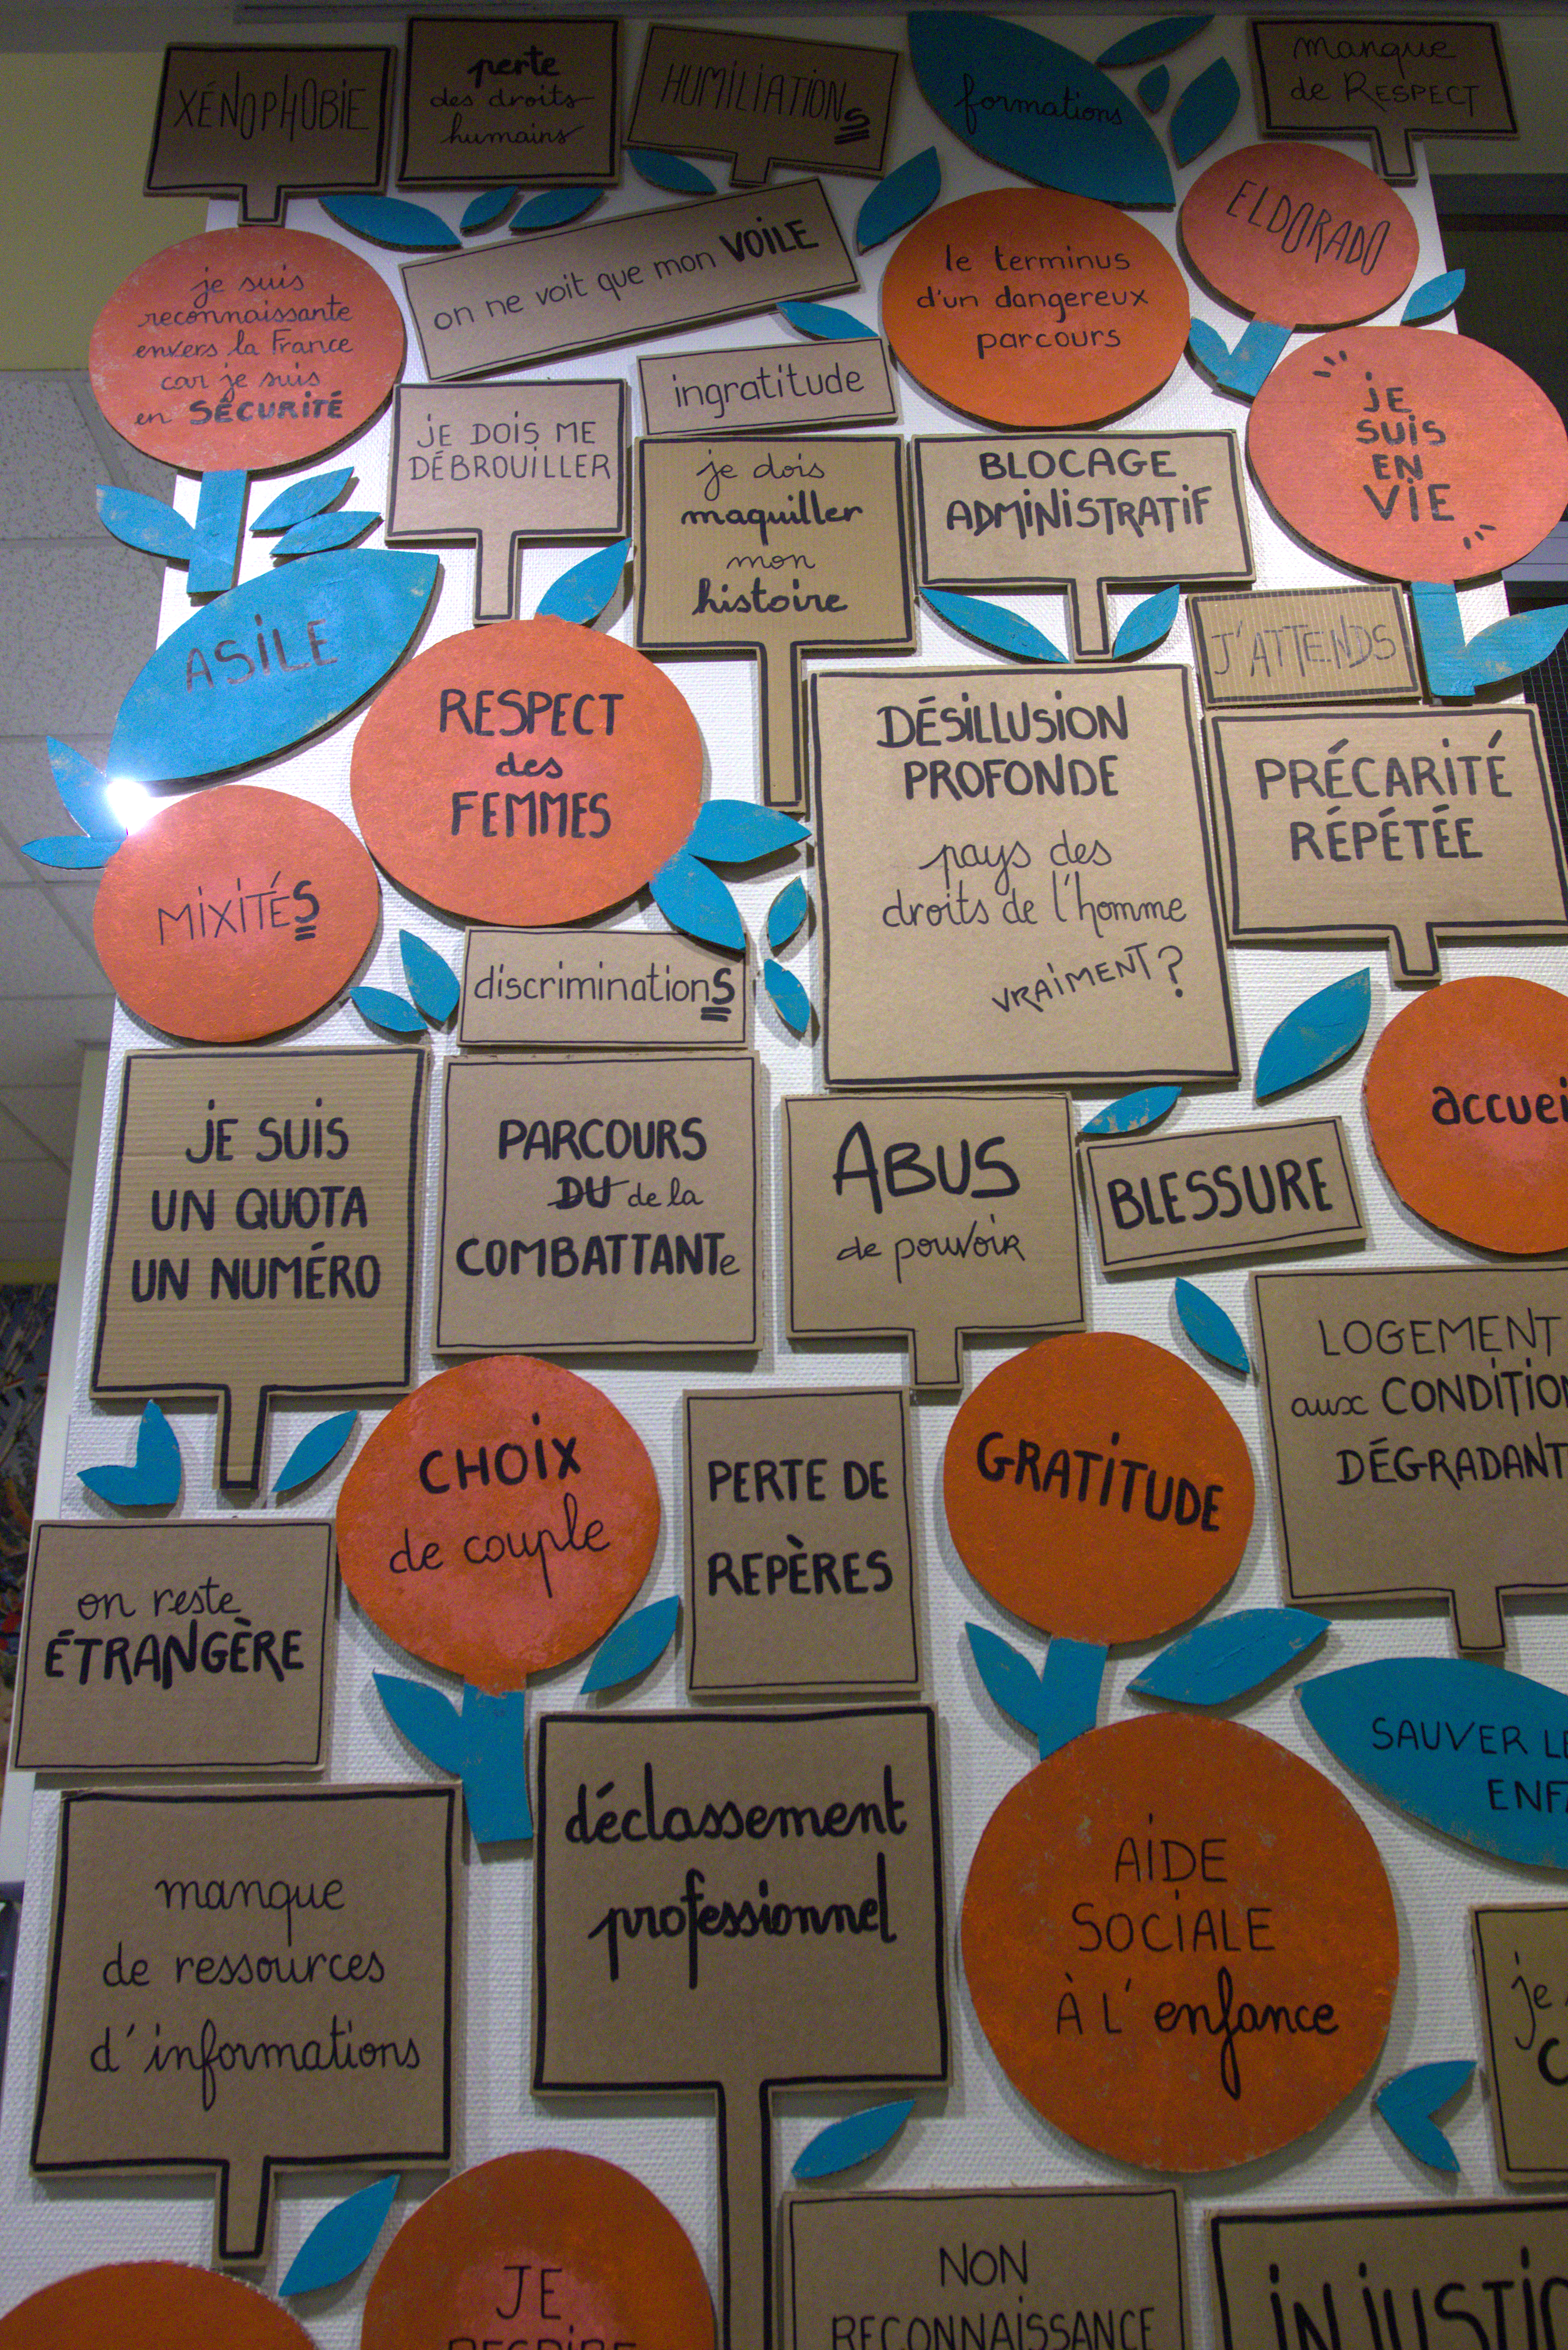 XÉNOPHOBIE
perte
des droits
humains
HUMILIATIONS
formations
manque
de RESPECT
je suis
reconnaissante
envers la France
car je suis
en SÉCURITÉ
on ne voit que mon VOILE
le terminus
d'un dangereux
parcours
ELDORADO
ingratitude
JE DOIS ME
DÉBROUILLER
je dois
maquiller
mon
histoire
BLOCAGE
ADMINISTRATIF
" JE
SUIS
EN
VIE "
ASILE
J'ATTENDS
RESPECT
des
FEMMES
DÉSILLUSION
PROFONDE
pays des
droits de l'homme
VRAIMENT ?
PRÉCARITÉ
RÉPÉTÉE
MIXITÉS
discriminationS
JE SUIS
UN QUOTA
UN NUMÉRO
PARCOURS
DU de la
COMBATTANTe
ABUS
de pouvoir
BLESSURE
accuei
LOGEMENT
aux CONDITION
DÉGRADANT
CHOIX
de couple
PERTE DE
REPÈRES
GRATITUDE
on reste
ÉTRANGÈRE
SAUVER LE
ENFA
manque
de ressources
d'informations
déclassement
professionnel
AIDE
SOCIALE
À L'enfance
je
C
JE
NON
RECONNAISSANCE
INJUSTIC